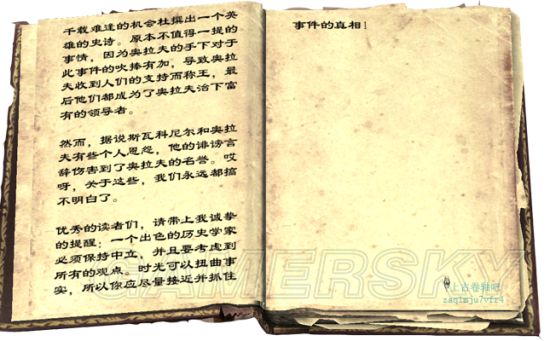 千载难逢的机会杜撰出一个英
雄的史诗。原本不值得一提的
事情，因为奥拉夫的手下对于
此事件的吹捧有加，导致奥拉
夫收到人们的支持而称王，最
后他们都成为了奥拉夫治下富
有的领导者。
然而，据说斯瓦科尼尔和奥拉
夫有些个人恩怨，他的诽谤言
辞伤害到了奥拉夫的名誉。哎
呀，关于这些，我们永远都搞
不明白了。
优秀的读者们，请带上我诚挚
的提醒：一个出色的历史学家
必须保持中立，并且要考虑到
所有的观点。时光可以扭曲事
实，所以你应尽量接近并抓住
事件的真相！
GAMERSKY
上古卷轴吧
zaq1mju7vfr4